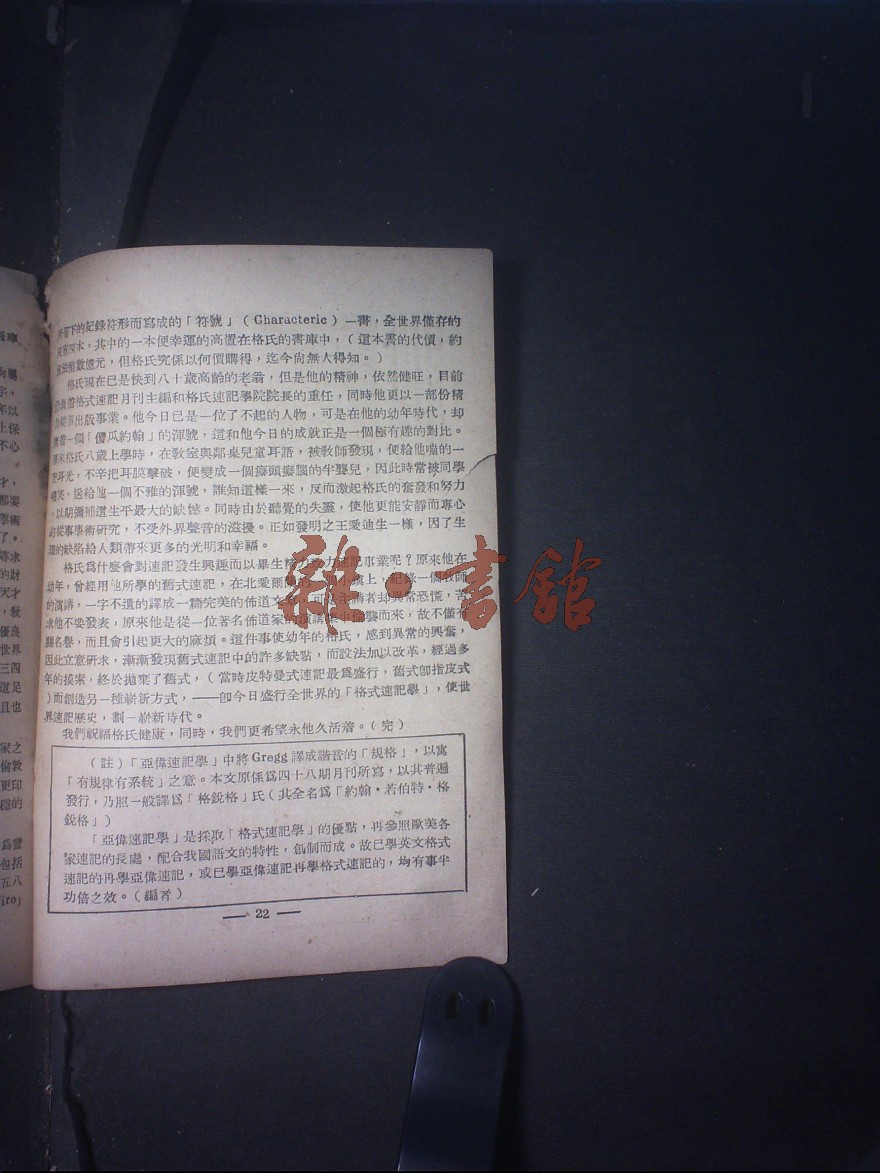 下的記錄符形而寫成的「符號」(Characterie)一書,全世界僅存的
本,其中的一本便幸運的高置在格氏的書庫中,(這本書的代價,約
數億元,但格氏究係以何價購得,迄今尙無人得知。)
格氏現在已是快到八十歲高齡的老翁,但是他的精神,依然健旺,目前
負着格式速記月刊主編和格氏速記學院院長的重任,同時他更以一部份精
力從事出版事業。他今日已是一位了不起的人物,可是在他的幼年時代,却
着一個「傻瓜約翰」的渾號,這和他今日的成就正是一個極有趣的對比。
來格氏八歲上學時,在敎室與鄰桌兒童耳語,被敎師發現,便給他嗡的一
耳光,不幸把耳膜擊破,便變成一個癡頭癡腦的半聾兒,因此時常被同學
笑,送給他一個不雅的渾號,誰知這樣一來,反而激起格氏的奮發和努力
,以期彌補這生平最大的缺憾。同時由於聽覺的失靈,使他更能安靜而專心
的從事學術研究,不受外界聲音的滋擾。正如發明之王愛迪生一樣,因了生
理的缺陷給人類帶來更多的光明和幸福。
格氏爲什麼會對速記發生興趣而以畢生精力致力速記事業呢?原來他在
幼年,曾經用他所學的舊式速記,在北愛爾蘭的一個小鎭上,紀錄一個牧師
的演講,一字不遺的譯成一篇完美的佈道文,可是主講者却異常恐慌,苦
求他不要發表,原來他是從一位著名佈道家的演講集中偷襲而來,故不僅有
關名譽,而且會引起更大的麻煩。這件事使幼年的格氏,感到異常的興奮,
因此立意研求,漸漸發現舊式速記中的許多缺點,而設法加以改革,經過多
年的摸索,終於拋棄了舊式,(當時皮特曼式速記最爲盛行,舊式卽指皮式
)而創造另一種嶄新方式,——卽今日盛行全世界的「格式速記學」,使世
界速記歷史,劃一嶄新時代。
我們祝福格氏健康,同時,我們更希望永他久活着。(完)
(註)「亞偉速記學」中將Gregg譯成諧音的「規格」,以寓
「有規律有系統」之意。本文原係爲四十八期月刊所寫,以其普遍
發行,乃照一般譯爲「格銳格」氏(其全名爲「約翰·若伯特·格
銳格」)
「亞偉速記學」是採取「格式速記學」的優點,再參照歐美各
家速記的長處,配合我國語文的特性,創制而成。故已學英文格式
速記的再學亞偉速記,或已學亞偉速記再學格式速記的,均有事半
功倍之效。(編者)
— 22 —
雜·書館